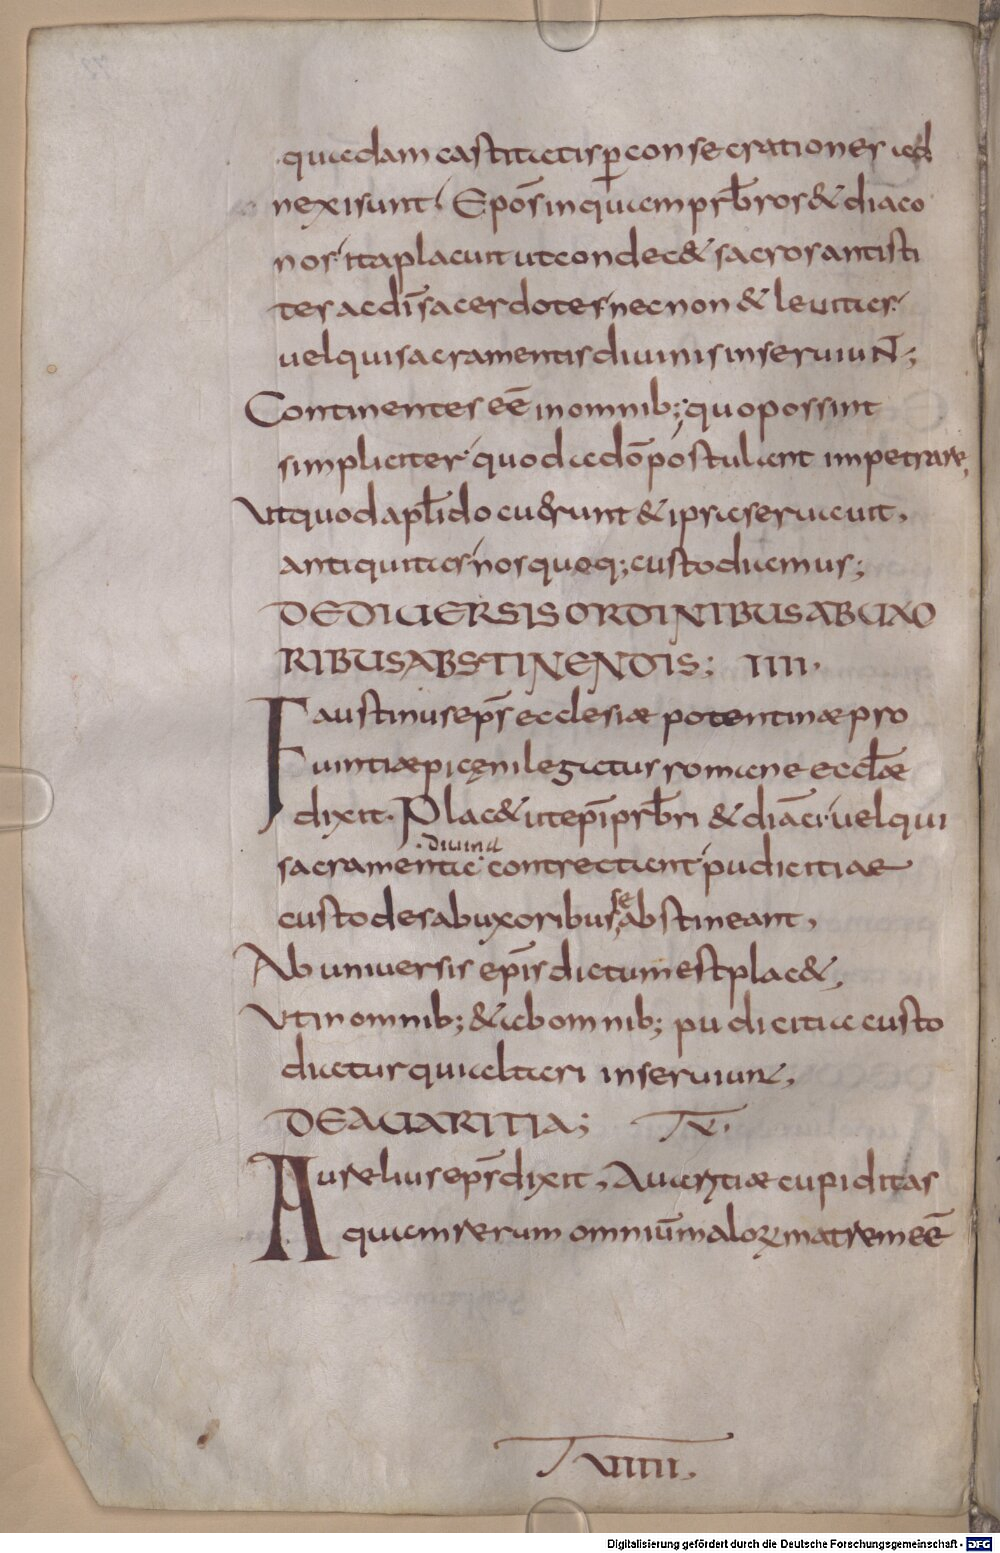 quadam castitatis p̲ consecrationes ad
nexi sunt. Epōs inquam pr̄bros & diaco
nos ita placuit ut condec& sacros antisti
tes ac dī sacerdotes nec non & leuitas.
uel qui sacramentis diuinis inseruiuNT;
Continentes eē in omnib; quo possint
simpliciter quod a dō postulant impetrare,
Ut quod apl̄i docuerunt & ipsa seruauit,
antiquitas nos quoq; custodiamus;
DE DIUERSIS ORDINIBUS AB UXO
RIBUS ABSTINENDIS; IIII.
Faustinus ep̄s ecclesiæ potentinæ pro
uintiæ piceni legatus romane eccl̄æ
dixit. Plac& ut ep̄i pr̄bri & diac̄ uel qui
sacramenta diuina contrectant pudicitiae
custodes ab uxoribus se abstineant,
Ab uniuersis ep̄is dictum est plac&,
Ut in omnib; & ab omnib; pudicitia custo
diatur qui altari inseruiunt,
DE AUARITIA; V.
Aurelius ep̄s dixit, Auaritiæ cupiditas
quam rerum omniū maloꝝ matrem eē
VIIII.
Digitalisierung gefördert durch die Deutsche Forschungsgemeinschaft - DFG